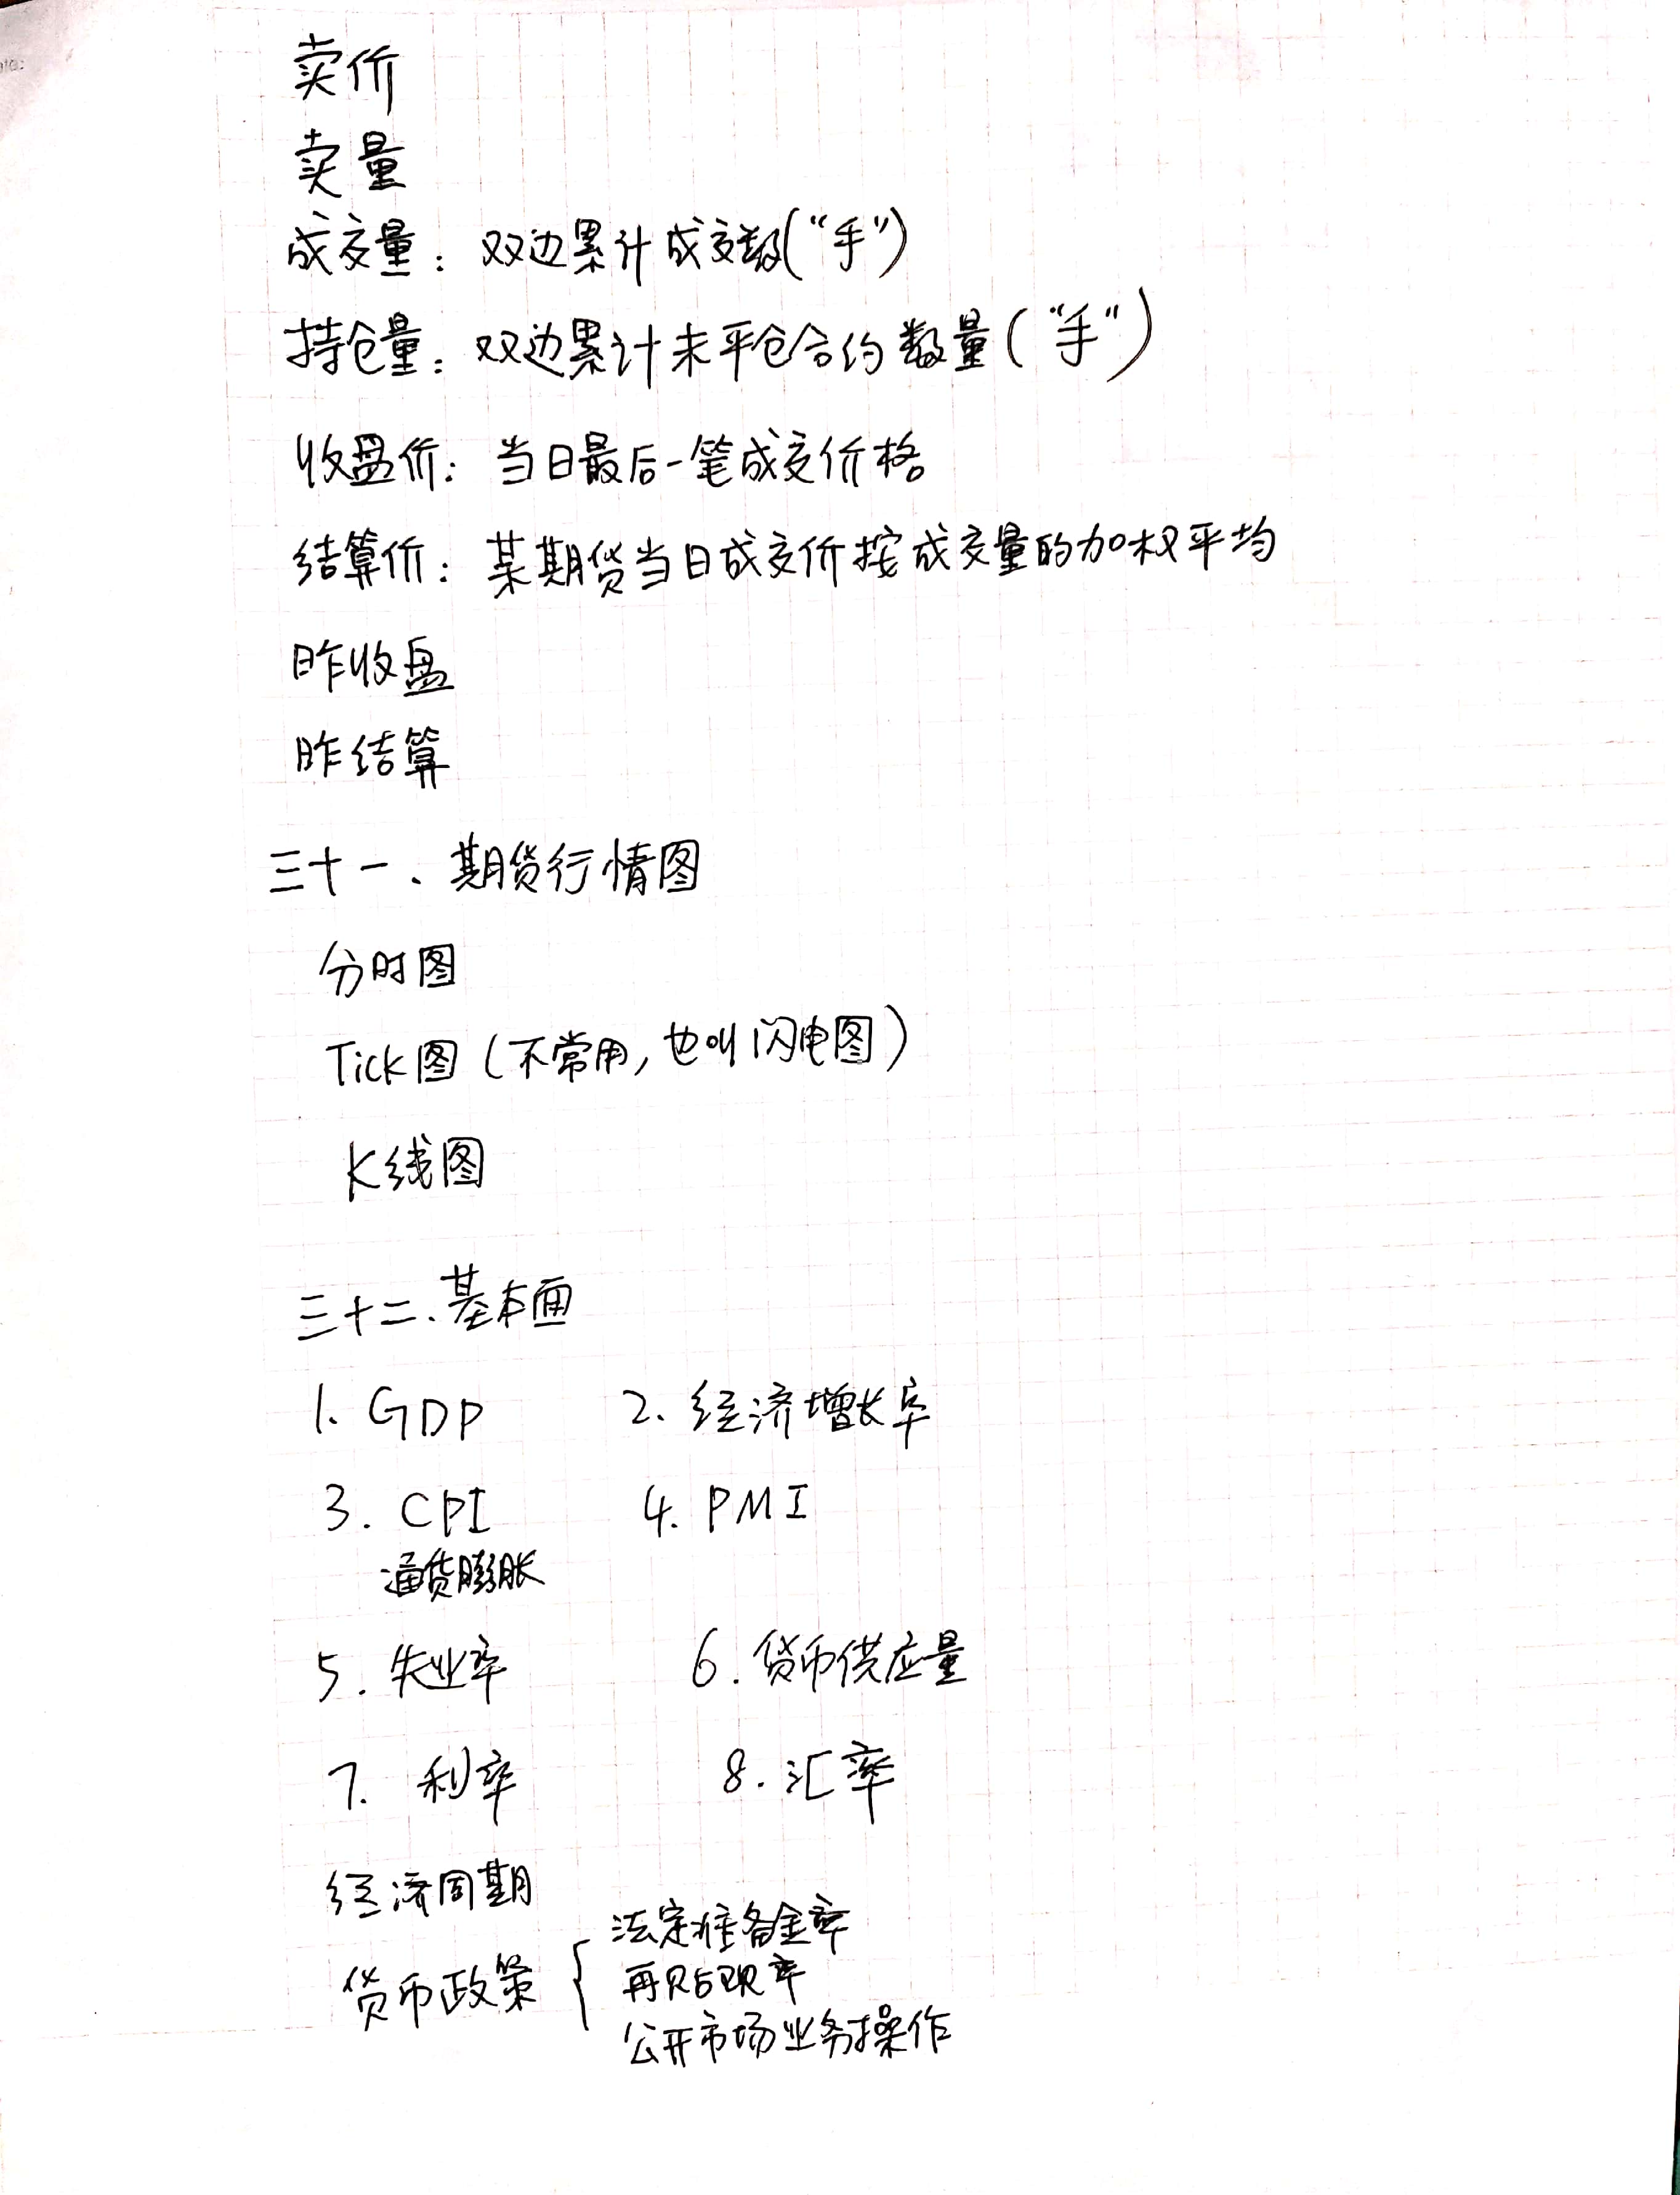 卖价
卖量
成交量：双边累计成交数(“手”)
持仓量：双边累计未平仓合约数量(“手”)
收盘价：当日最后一笔成交价格
结算价：某期货当日成交价按成交量的加权平均
昨收盘
昨结算
三十一、期货行情图
分时图
Tick图(不常用,也叫闪电图)
K线图
三十二、基本面
1. GDP 2. 经济增长率
3. CPI 4. PMI
通货膨胀
5. 失业率 6. 货币供应量
7. 利率 8. 汇率
经济周期
法定准备金率
货币政策 { 再贴现率
公开市场业务操作